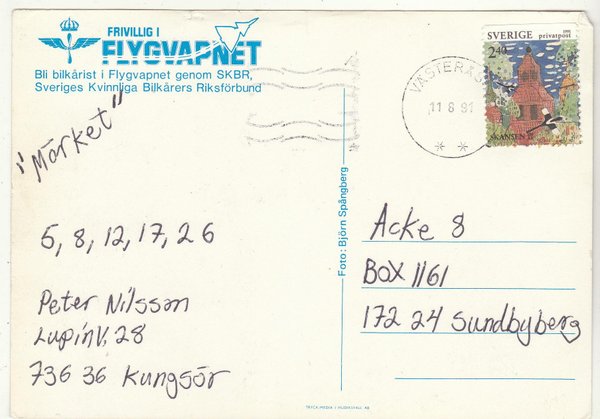 FRIVILLIG I
FLYGVAPNET
Bli bilkårist i Flygvapnet genom SKBR,
Sveriges Kvinnliga Bilkårers Riksförbund
"Märket"
5, 8, 12, 17, 26
Peter Nilsson
LupinV. 28
736 36 Kungsör
Foto: Björn Spångberg
SVERIGE 1991
privatpost
2 40
SKANSEN
VÄSTERÅS
11 8 91
* *
Acke 8
BOX 1161
172 24 Sundbyberg